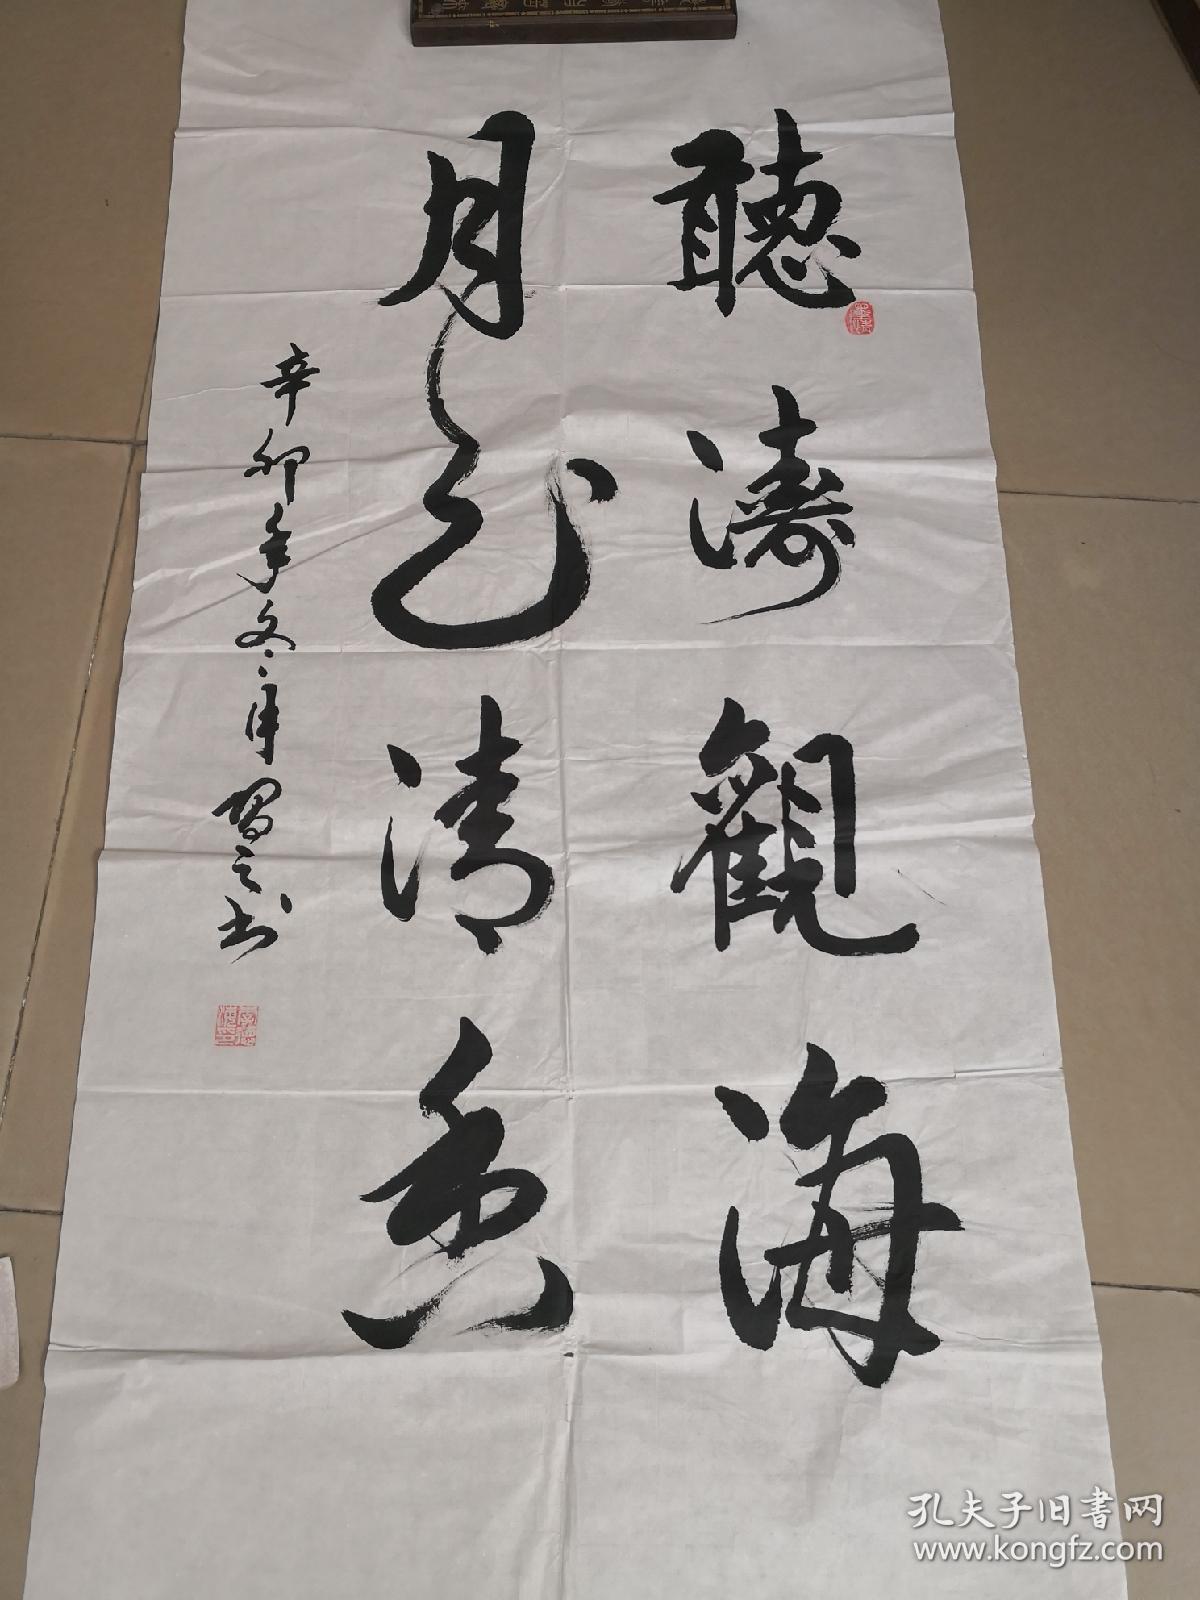 聽濤觀海
月清香
辛卯年冬月習之书
孔夫子旧書网
www.kongfz.com